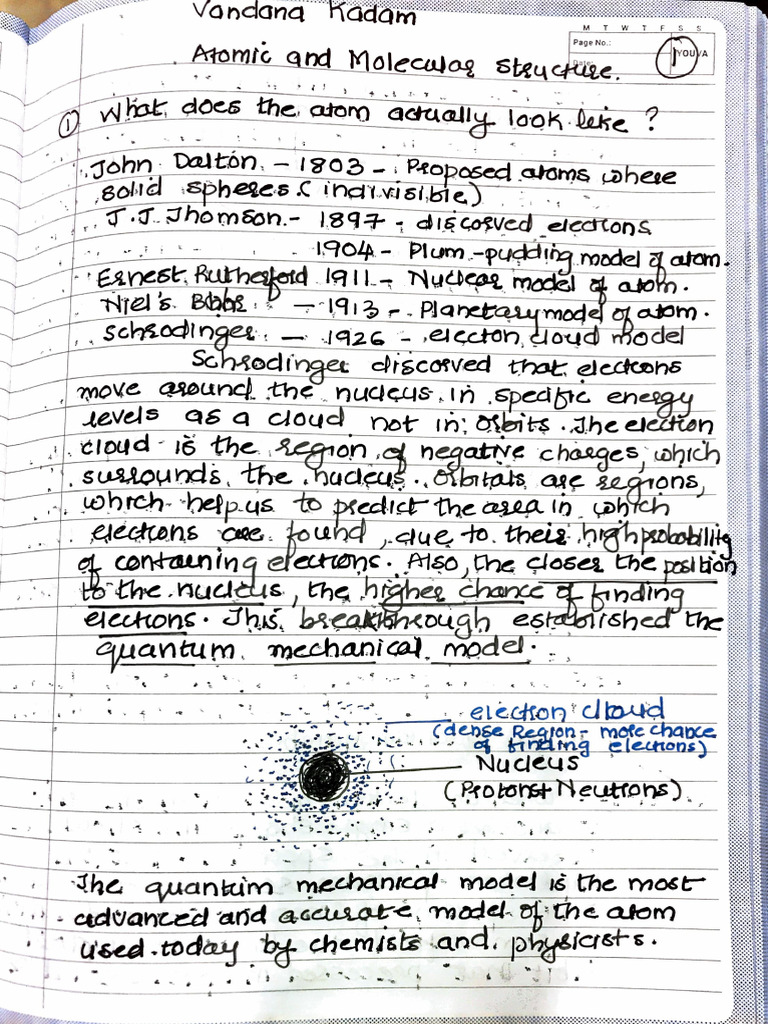 Vandana Kadam
M T W T F S S
Page No.:
Date:
YOUVA
1
Atomic and Molecular structure.
① What does the atom actually look like ?
John Dalton - 1803 - Proposed atoms where
solid spheres (indivisible)
J.J. Thomson - 1897 - discorved electrons
1904 - Plum-pudding model of atom.
Ernest Rutherford 1911 - Nuclear model of atom.
Niel's Bohr - 1913 - Planetary model of atom.
Schrodinger - 1926 - electon cloud model
Schrodinger discorved that electrons
move around the nucleus in specific energy
levels as a cloud not in orbits. The election
cloud is the region of negative charges, which
surrounds the nucleus. Orbitals are regions,
which help us to predict the area in which
electrons are found, due to their high probability
of containing electrons. Also, the closer the position
to the nucleus, the higher chance of finding
electrons. This breakthrough established the
quantum mechanical model.
election cloud
(dense Region - more chance
of finding electrons)
Nucleus
(Protons+ Neutrons)
The quantum mechanical model is the most
advanced and accurate model of the atom
used today by chemists and physicists.